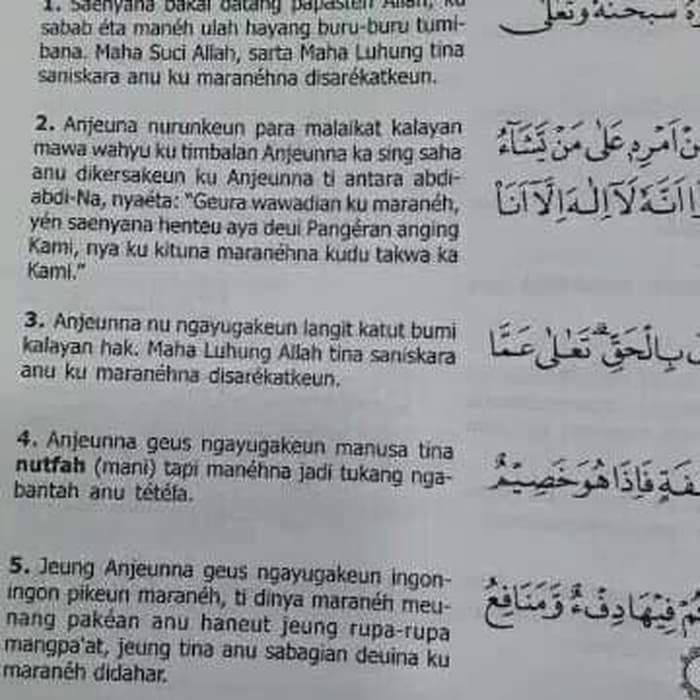 1. Saenyana bakal datang papasten Allah, ku
sabab éta manéh ulah hayang buru-buru tumi-
bana. Maha Suci Allah, sarta Maha Luhung tina
saniskara anu ku maranéhna disarékatkeun.
2. Anjeuna nurunkeun para malaikat kalayan
mawa wahyu ku timbalan Anjeunna ka sing saha
anu dikersakeun ku Anjeunna ti antara abdi-
abdi-Na, nyaéta: "Geura wawadian ku maranéh,
yén saenyana henteu aya deui Pangéran anging
Kami, nya ku kituna maranéhna kudu takwa ka
Kami."
3. Anjeunna nu ngayugakeun langit katut bumi
kalayan hak. Maha Luhung Allah tina saniskara
anu ku maranéhna disarékatkeun.
4. Anjeunna geus ngayugakeun manusa tina
nutfah (mani) tapi manéhna jadi tukang nga-
bantah anu tétéla.
5. Jeung Anjeunna geus ngayugakeun ingon-
ingon pikeun maranéh, ti dinya maranéh meu-
nang pakéan anu haneut jeung rupa-rupa
mangpa'at, jeung tina anu sabagian deuina ku
maranéh didahar.
سُبْحٰنَهٗ وَتَعٰلٰى
اَمْرِهٖ عَلٰى مَنْ يَّشَاۤءُ
اَنَّهٗ لَآ اِلٰهَ اِلَّآ اَنَا۠
بِالْحَقِّۗ تَعٰلٰى عَمَّا
فَاِذَا هُوَ خَصِيْمٌ
فِيْهَا دِفْءٌ وَّمَنَافِعُ